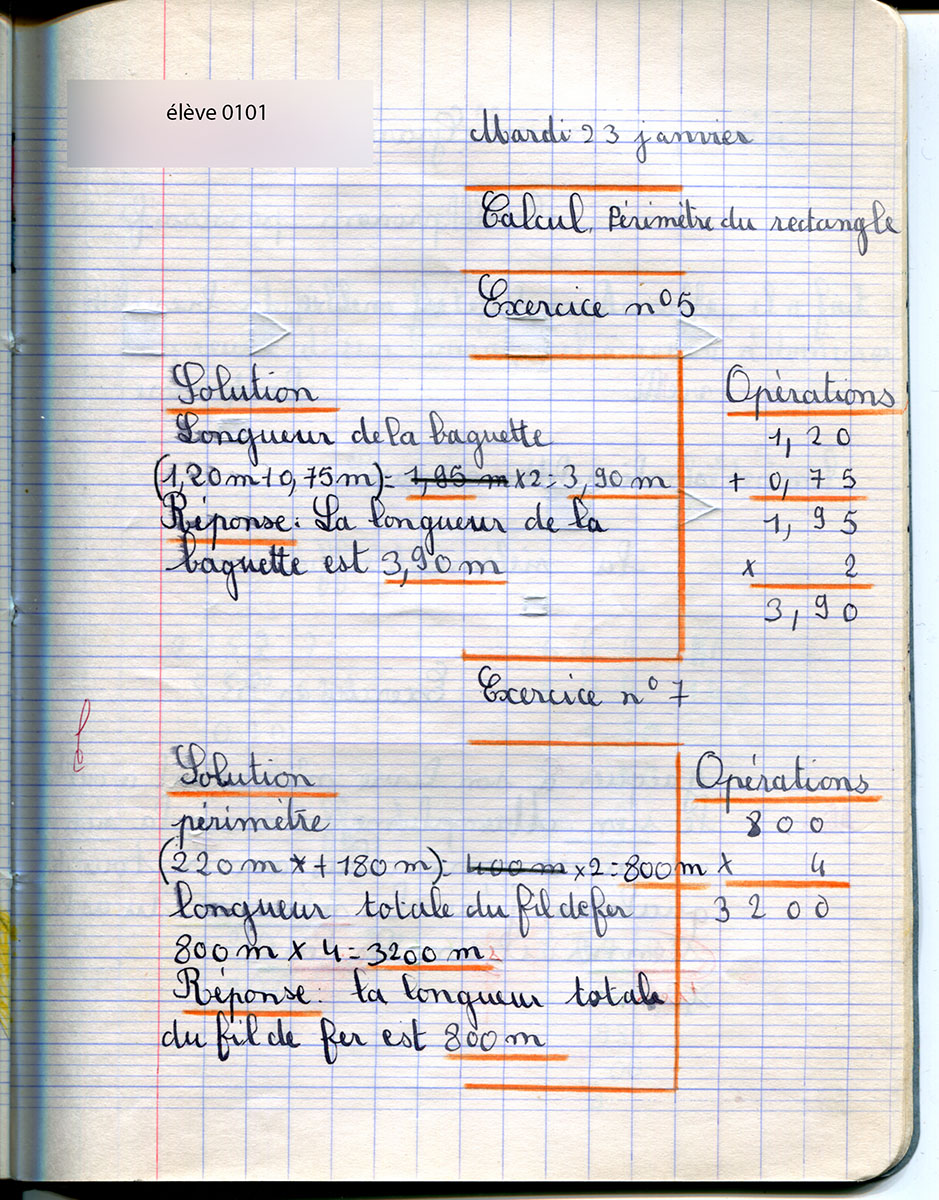 élève 0101
Mardi 23 janvier
Calcul. Périmètre du rectangle
Exercice n° 5
Solution
Longueur de la baguette
(1,20 m + 0,75 m) = 1,95 m x 2 = 3,90 m
Réponse : La longueur de la
baguette est 3,90 m
Opérations
1,20
+ 0,75
1,95
x 2
3,90
Exercice n° 7
Solution
périmètre
(220 m x + 180 m) = 400 m x 2 = 800 m
longueur totale du fil de fer
800 m x 4 = 3200 m
Réponse : la longueur totale
du fil de fer est 800 m
Opérations
800
x 4
3200